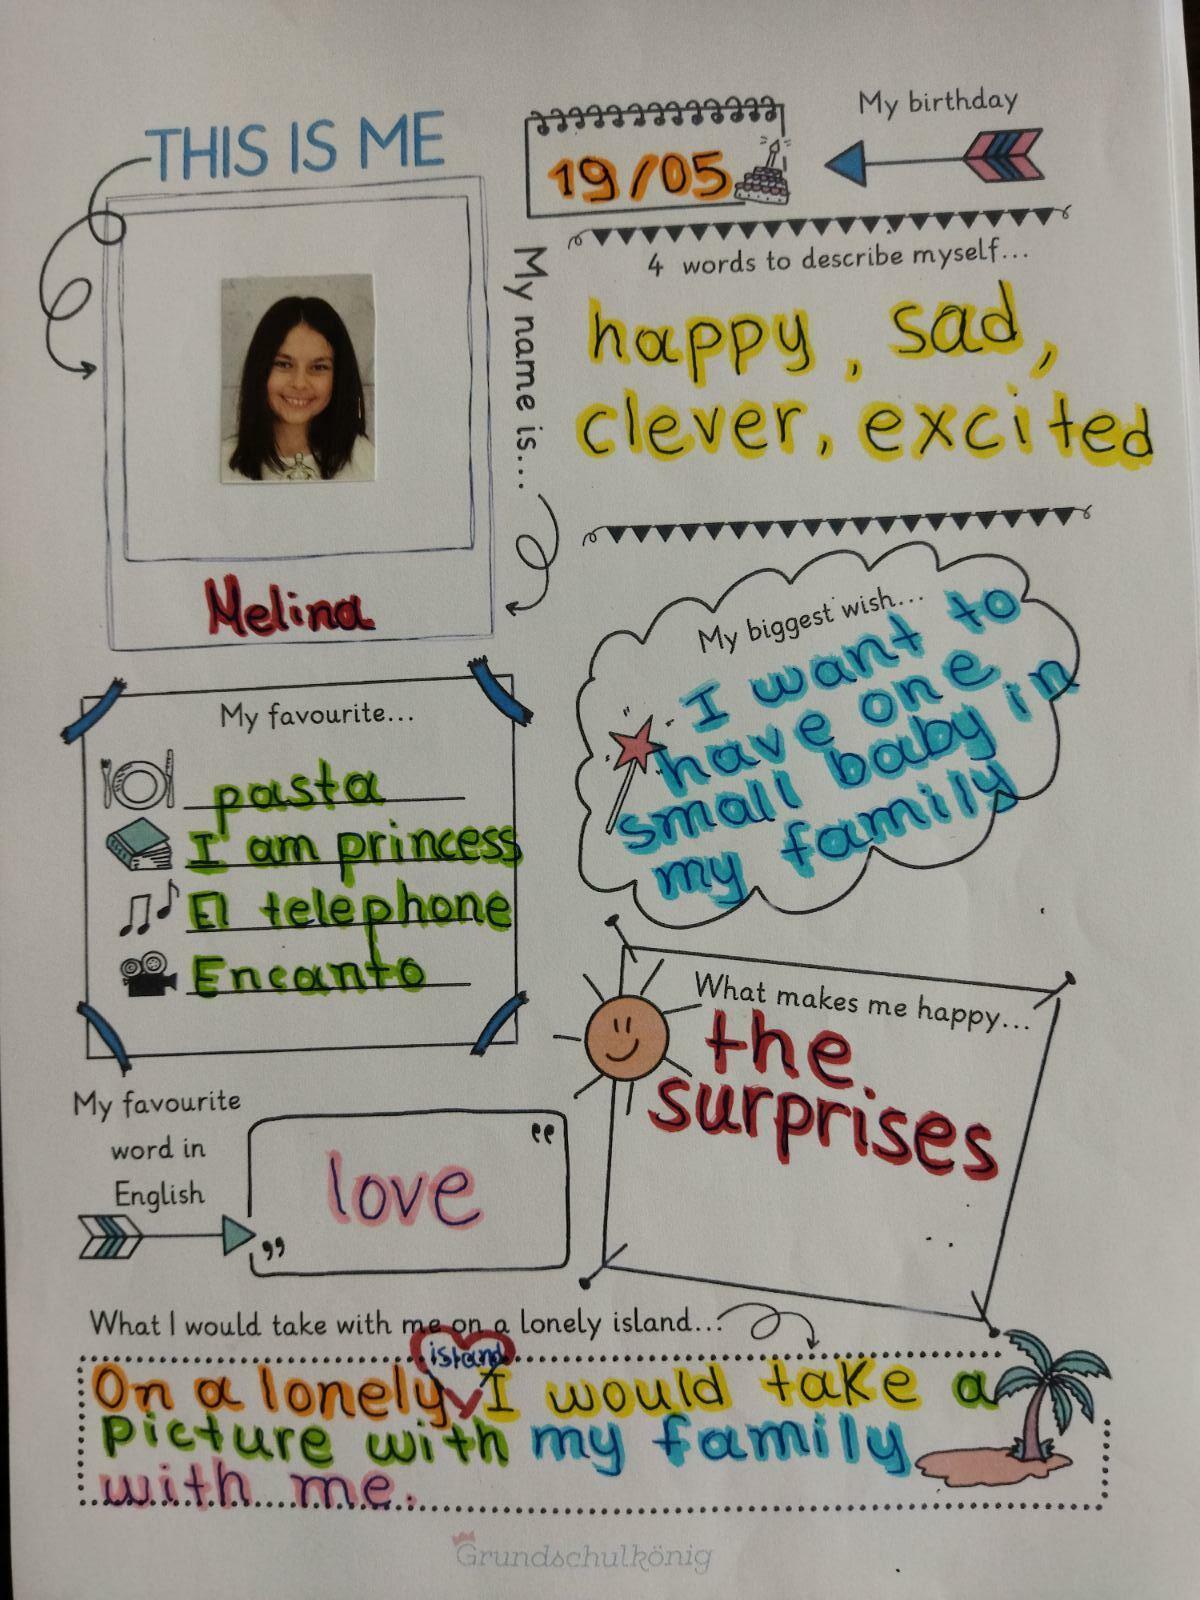 THIS IS ME
My birthday
19/05
My name is...
Melina
4 words to describe myself...
happy, sad,
clever, excited
My biggest wish...
I want to
have one
small baby in
my family
My favourite...
pasta
I am princess
El telephone
Encanto
What makes me happy...
the
surprises
My favourite
word in
English
love
What I would take with me on a lonely island...
island
On a lonely I would take a
picture with my family
with me.
Grundschulkönig